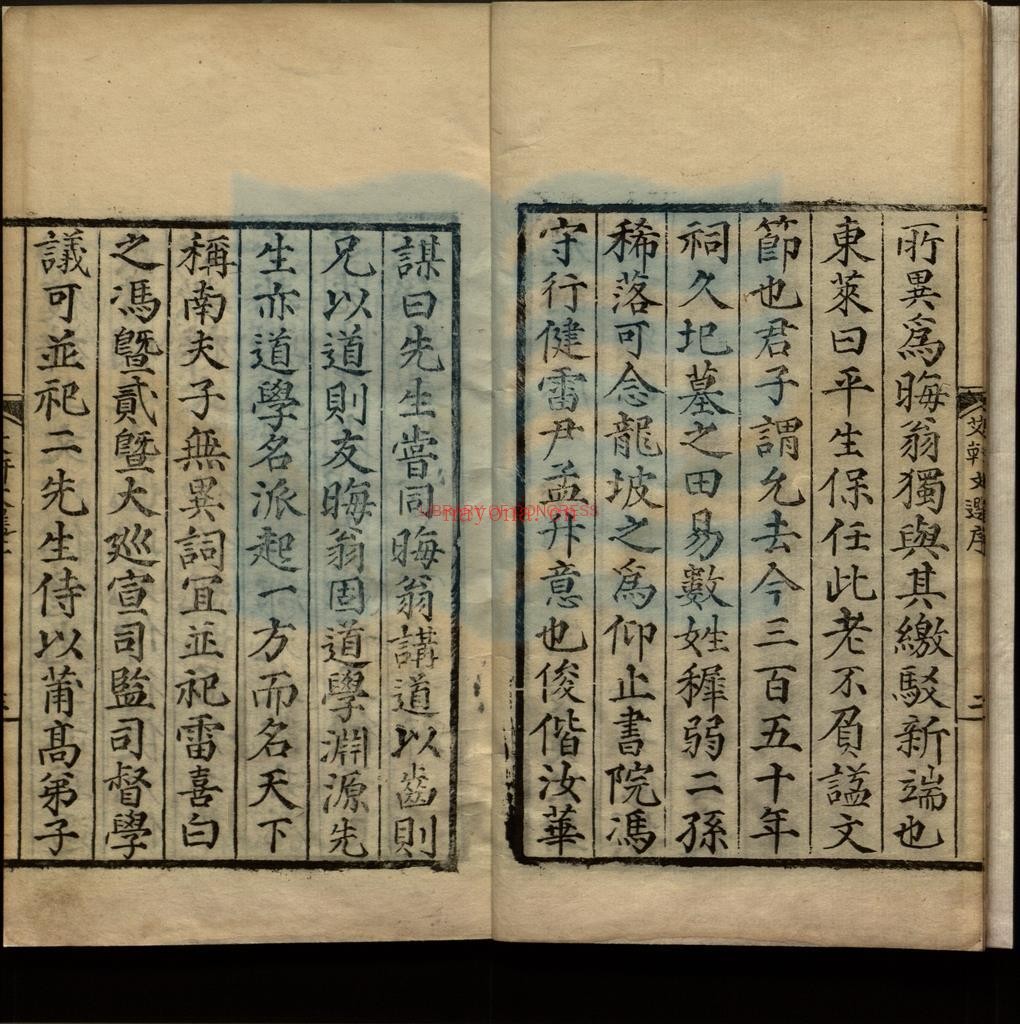 所異爲晦翁獨與其繳駁新端也
東萊曰平生保任此老不負謚文
節也君子謂允去今三百五十年
祠久圮墓之田易數姓穉弱二孫
稀落可念龍坡之爲仰止書院馮
守行健雷尹孟升意也俊偕汝華
艾軒文選序
三
謀曰先生嘗同晦翁講道以齒則
兄以道則友晦翁固道學淵源先
生亦道學名派起一方而名天下
稱南夫子無異詞宜並祀雷喜白
之馮暨貳暨大廵宣司監司督學
議可並祀二先生侍以莆高弟子
LIBRARY OF CONGRESS